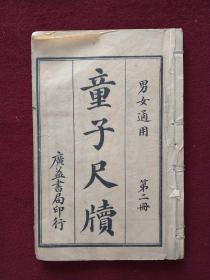 男女通用
第二冊
童子尺牘
廣益書局印行